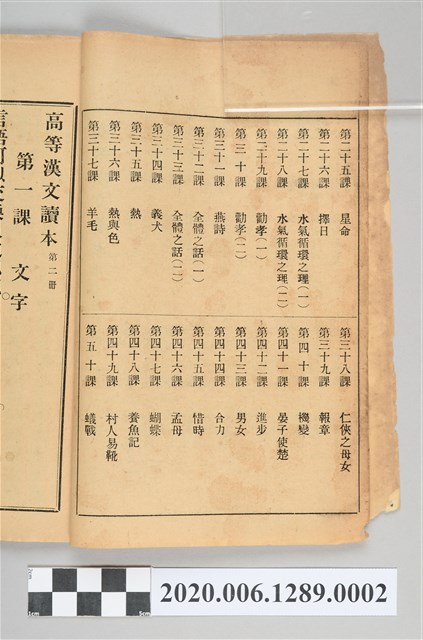 第二十五課　星命
第二十六課　擇日
第二十七課　水氣循環之理（一）
第二十八課　水氣循環之理（二）
第二十九課　勸孝（一）
第三十課　勸孝（二）
第三十一課　燕詩
第三十二課　全體之話（一）
第三十三課　全體之話（二）
第三十四課　義犬
第三十五課　熱
第三十六課　熱與色
第三十七課　羊毛
第三十八課　仁俠之母女
第三十九課　報章
第四十課　機變
第四十一課　晏子使楚
第四十二課　進步
第四十三課　男女
第四十四課　合力
第四十五課　惜時
第四十六課　孟母
第四十七課　蝴蝶
第四十八課　養魚記
第四十九課　村人易靴
第五十課　蟻戰
高等漢文讀本 第二冊
第一課　文字
2cm
1cm
5cm
2020.006.1289.0002